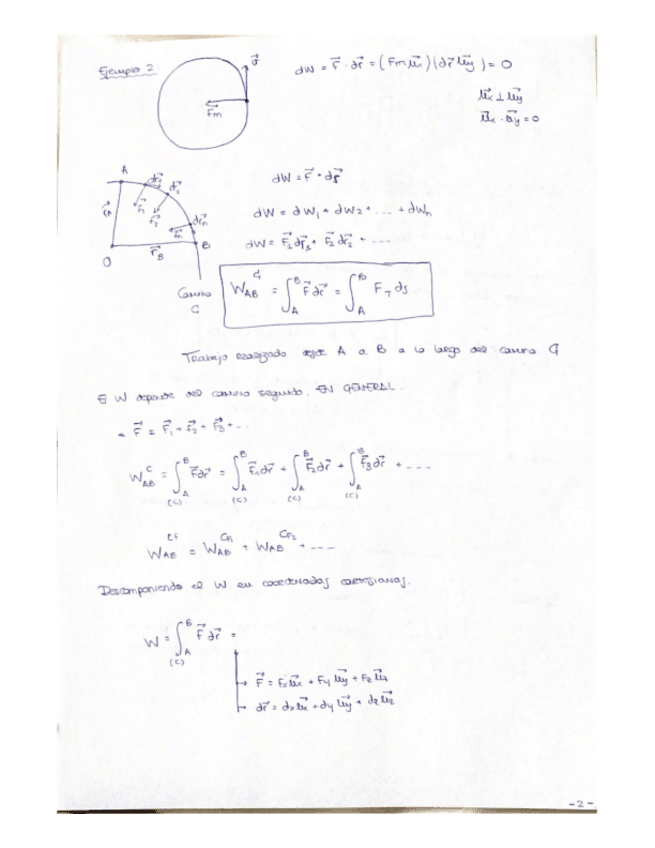 Ejemplo 2.
v⃗
F⃗m
dW = F⃗ · dr⃗ = (Fm u⃗x)(dr⃗ u⃗y) = 0
u⃗x ⊥ u⃗y
u⃗x · u⃗y = 0
A
dr⃗1
dr⃗2
F⃗1
F⃗2
dr⃗n
F⃗n
B
r⃗B
O
Camino
C
dW = F⃗ · dr⃗
dW = dW1 + dW2 + .... + dWn
dW = F⃗1dr⃗1 + F⃗2 dr⃗2 + ....
W_AB^C = ∫_A^B F⃗ dr⃗ = ∫_A^B F_T ds
Trabajo realizado desde A a B a lo largo del camino C
El W depende del camino seguido. EN GENERAL.
F⃗ = F⃗1 + F⃗2 + F⃗3 + ...
W_AB^C = ∫_A^B (C) F⃗dr⃗ = ∫_A^B (C) F⃗1dr⃗ + ∫_A^B (C) F⃗2dr⃗ + ∫_A^B (C) F⃗3dr⃗ + ....
W_AB^CF = W_AB^CF1 + W_AB^CF2 + ....
Descomponiendo el W en coordenadas cartesianas.
W = ∫_A^B (C) F⃗ dr⃗ =
F⃗ = Fx u⃗x + Fy u⃗y + Fz u⃗z
dr⃗ = dx u⃗x + dy u⃗y + dz u⃗z
-2-